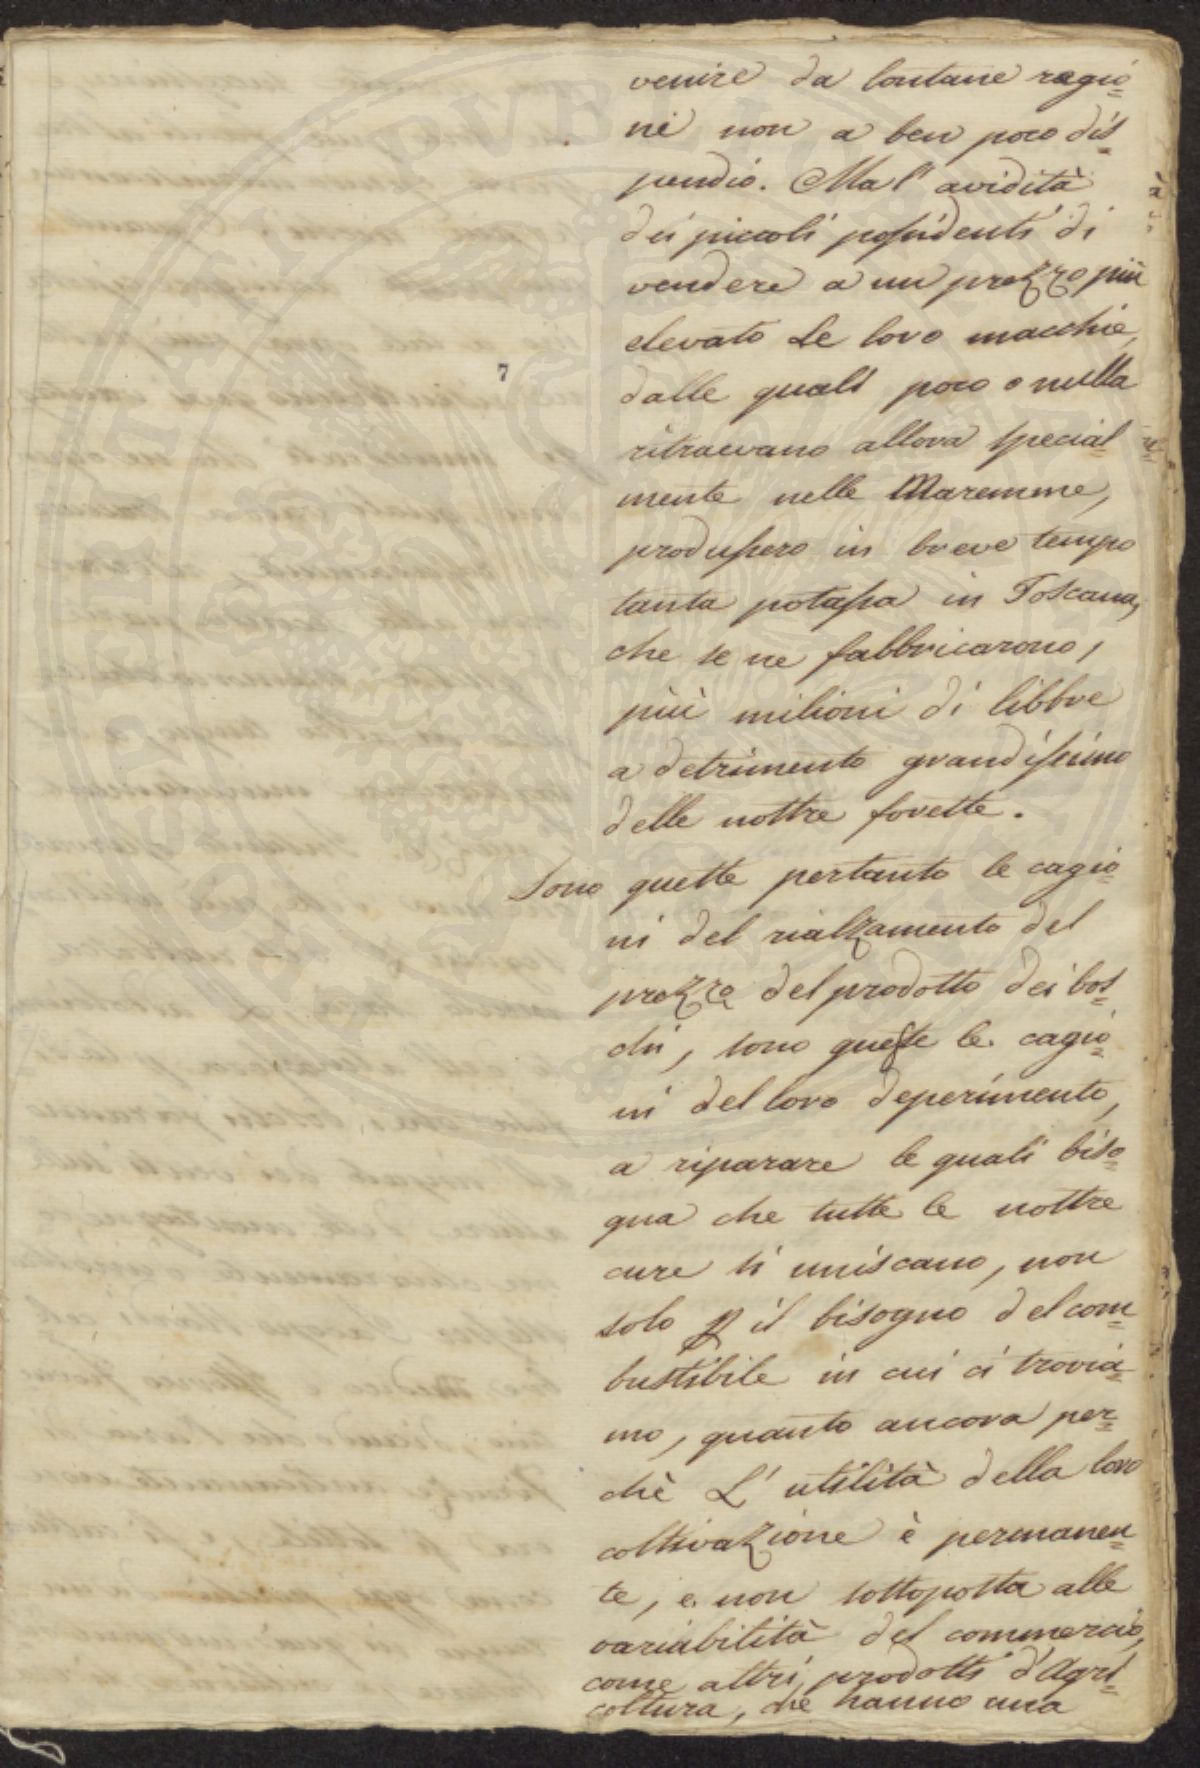 venire da lontane regio=
ni non a ben poco dis=
pendio. Ma l' avidità
dei piccoli possidenti di
vendere a un prezzo più
elevato Le loro macchie,
7
dalle quali poco o nulla
ritraevano allora special=
mente nelle Maremme,
produssero in breve tempo
tanta potassa in Toscana,
che se ne fabbricarono,
più milioni di libbre
a detrimento grandissimo
delle nostre foreste.
Sono queste pertanto le cagio=
ni del rialzamento del
prezzo del prodotto dei bos=
chi, sono queste le cagio=
ni del loro deperimento,
a riparare le quali biso=
gna che tutte le nostre
cure si uniscano, non
solo p il bisogno del com=
bustibile in cui ci trovia=
mo, quanto ancora per=
chè L' utilità della loro
coltivazione è permanen=
te, e non sottoposta alle
variabilità del commercio,
come altri prodotti d'Agri=
coltura, che hanno una